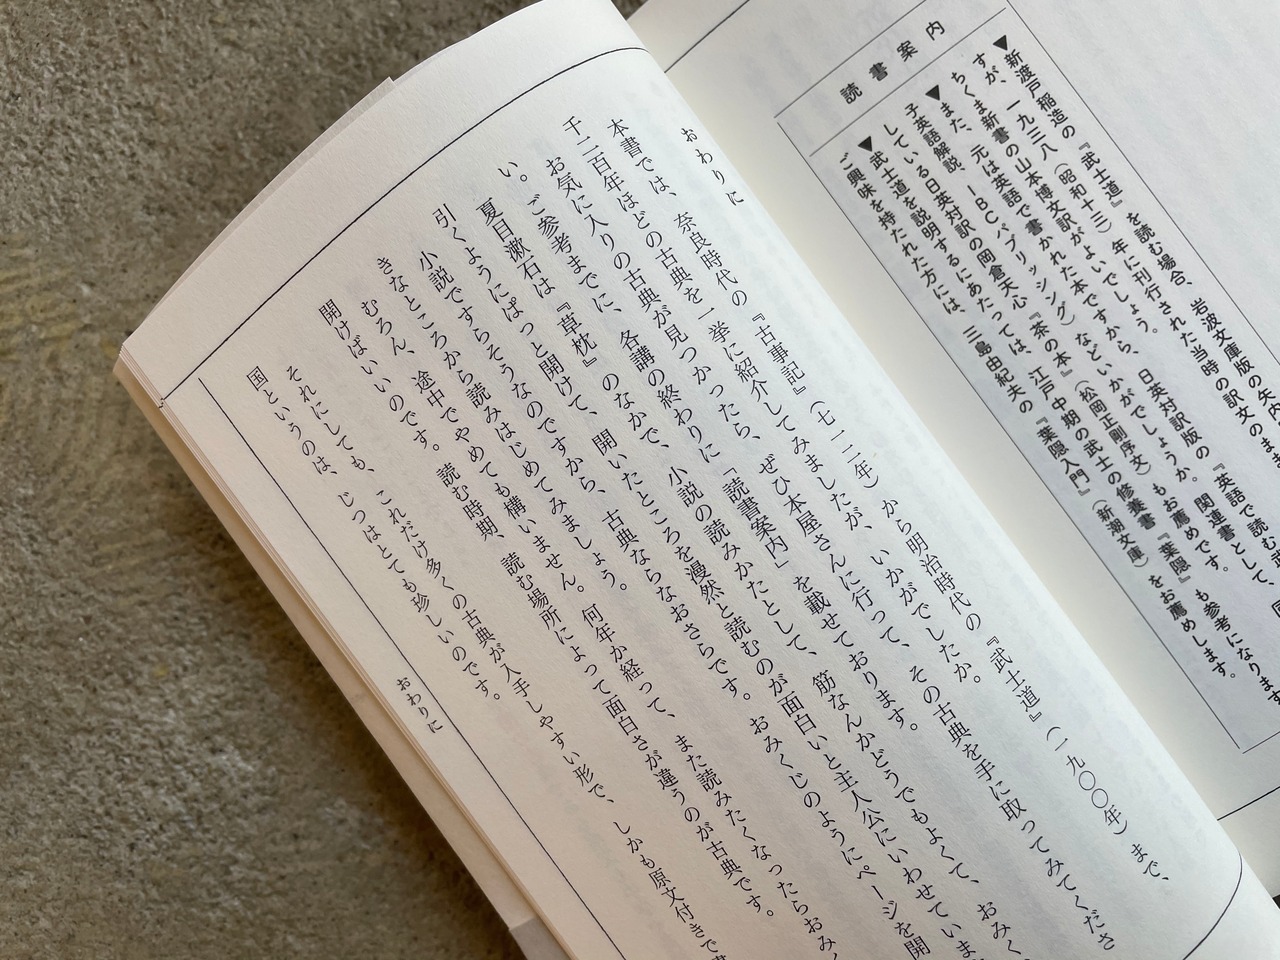 読書案内
▼新渡戸稲造の『武士道』を読む場合、岩波文庫版の矢内
すが、一九三八（昭和十三）年に刊行された当時の訳文のまま
ちくま新書の山本博文訳がよいでしょう。
▼また、元は英語で書かれた本ですから、日英対訳版の『英語で読む武
子英語解説、IBCパブリッシング）などいかがでしょうか。関連書として、
している日英対訳の岡倉天心『茶の本』（松岡正剛序文）もお薦めです。
▼武士道を説明するにあたっては、江戸中期の武士の修養書『葉隠』も参考になります
ご興味を持たれた方には、三島由紀夫の『葉隠入門』（新潮文庫）をお薦めします。
おわりに
本書では、奈良時代の『古事記』（七一二年）から明治時代の『武士道』（一九〇〇年）まで、
千二百年ほどの古典を一挙に紹介してみましたが、いかがでしたか。
お気に入りの古典が見つかったら、ぜひ本屋さんに行って、その古典を手に取ってみてくださ
い。ご参考までに、各講の終わりに「読書案内」を載せております。
夏目漱石は『草枕』のなかで、小説の読みかたとして、筋なんかどうでもよくて、おみく
引くようにぱっと開けて、開いたところを漫然と読むのが面白いと主人公にいわせていま
小説ですらそうなのですから、古典ならなおさらです。おみくじのようにページを開
きなところから読みはじめてみましょう。
むろん、途中でやめても構いません。何年か経って、また読みたくなったらおみく
開けばいいのです。読む時期、読む場所によって面白さが違うのが古典です。
それにしても、これだけ多くの古典が入手しやすい形で、しかも原文付きで
国というのは、じつはとても珍しいのです。
おわりに